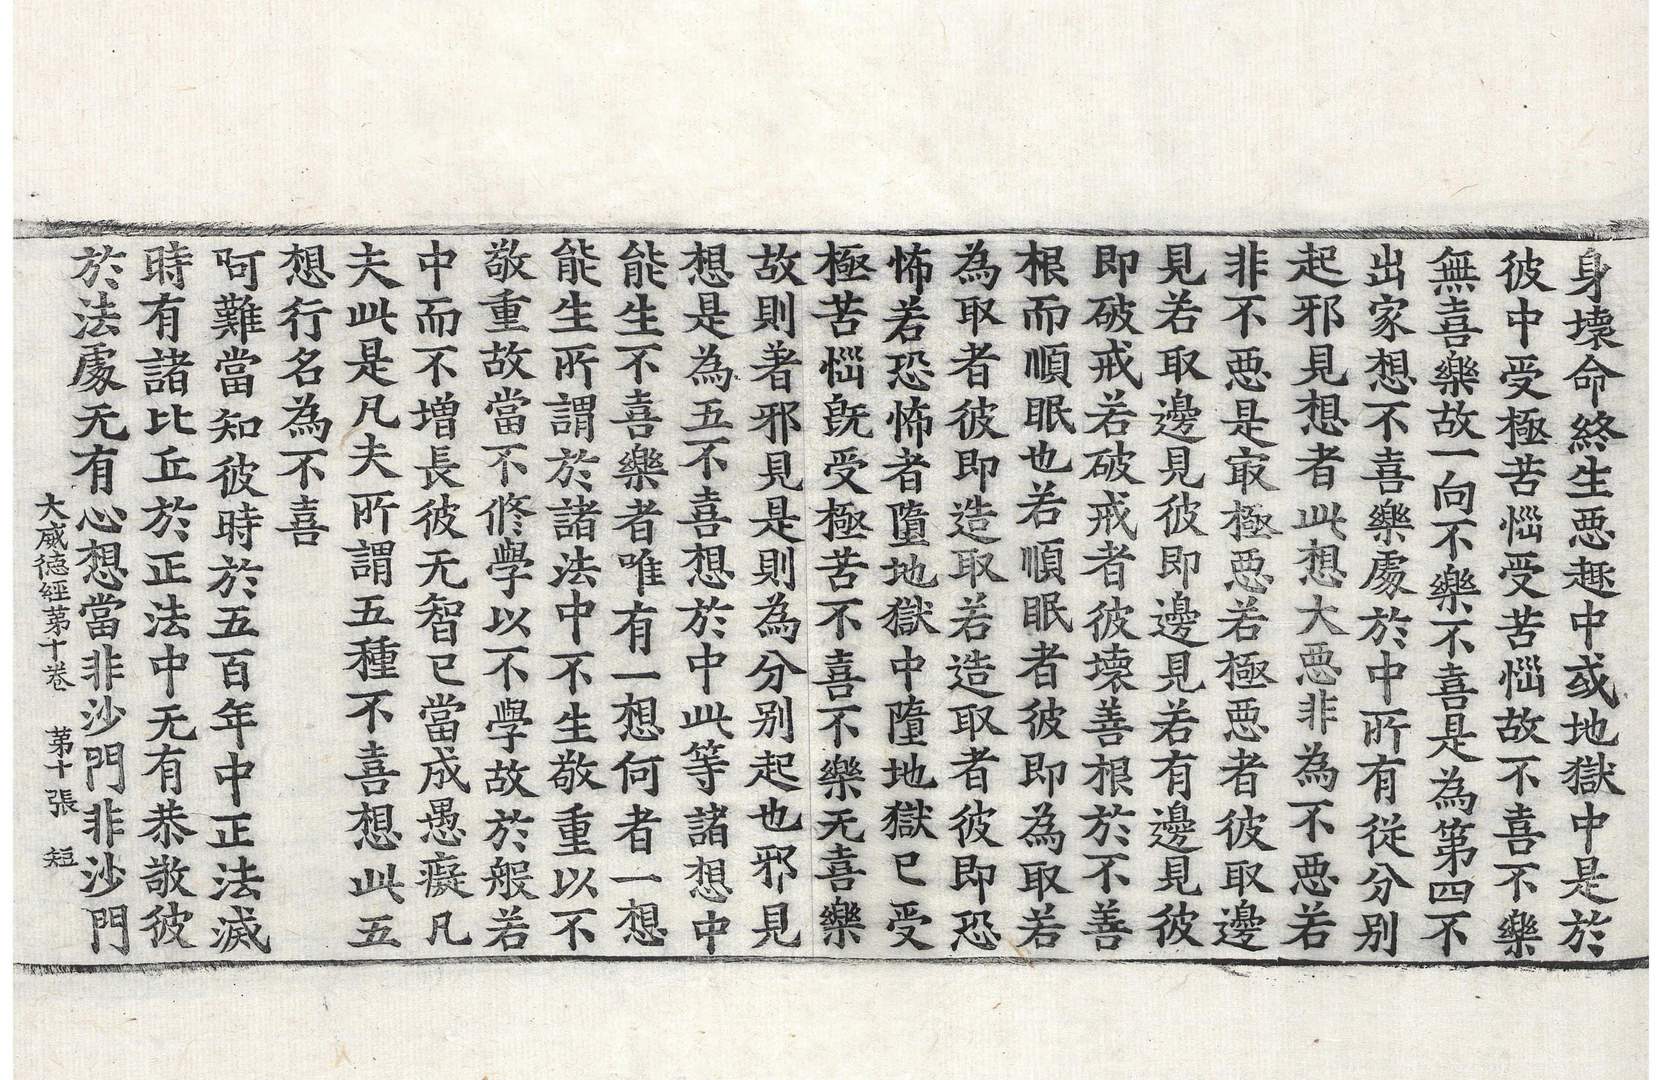 身壞命終生惡趣中或地獄中是於
彼中受極苦惱受苦惱故不喜不樂
無喜樂故一向不樂不喜是為第四不
出家想不喜樂處於中所有從分別
起邪見想者此想大惡非為不惡若
非不惡是寂極惡若極惡者彼取邊
見若取邊見彼即邊見若有邊見彼
即破戒若破戒者彼壞善根於不善
根而順眠也若順眠者彼即為取若
為取者彼即造取若造取者彼即恐
怖若恐怖者墮地獄中墮地獄已受
極苦惱旣受極苦不喜不樂无喜樂
故則著邪見是則為分别起也邪見
想是為五不喜想於中此等諸想中
能生不喜樂者唯有一想何者一想
能生所謂於諸法中不生敬重以不
敬重故當不修學以不學故於般若
中而不增長彼无智已當成愚癡凡
夫此是凡夫所謂五種不喜想此五
想行名為不喜
阿難當知彼時於五百年中正法滅
時有諸比丘於正法中无有恭敬彼
於法處无有心想當非沙門非沙門
大威德經第十卷　第十張　短